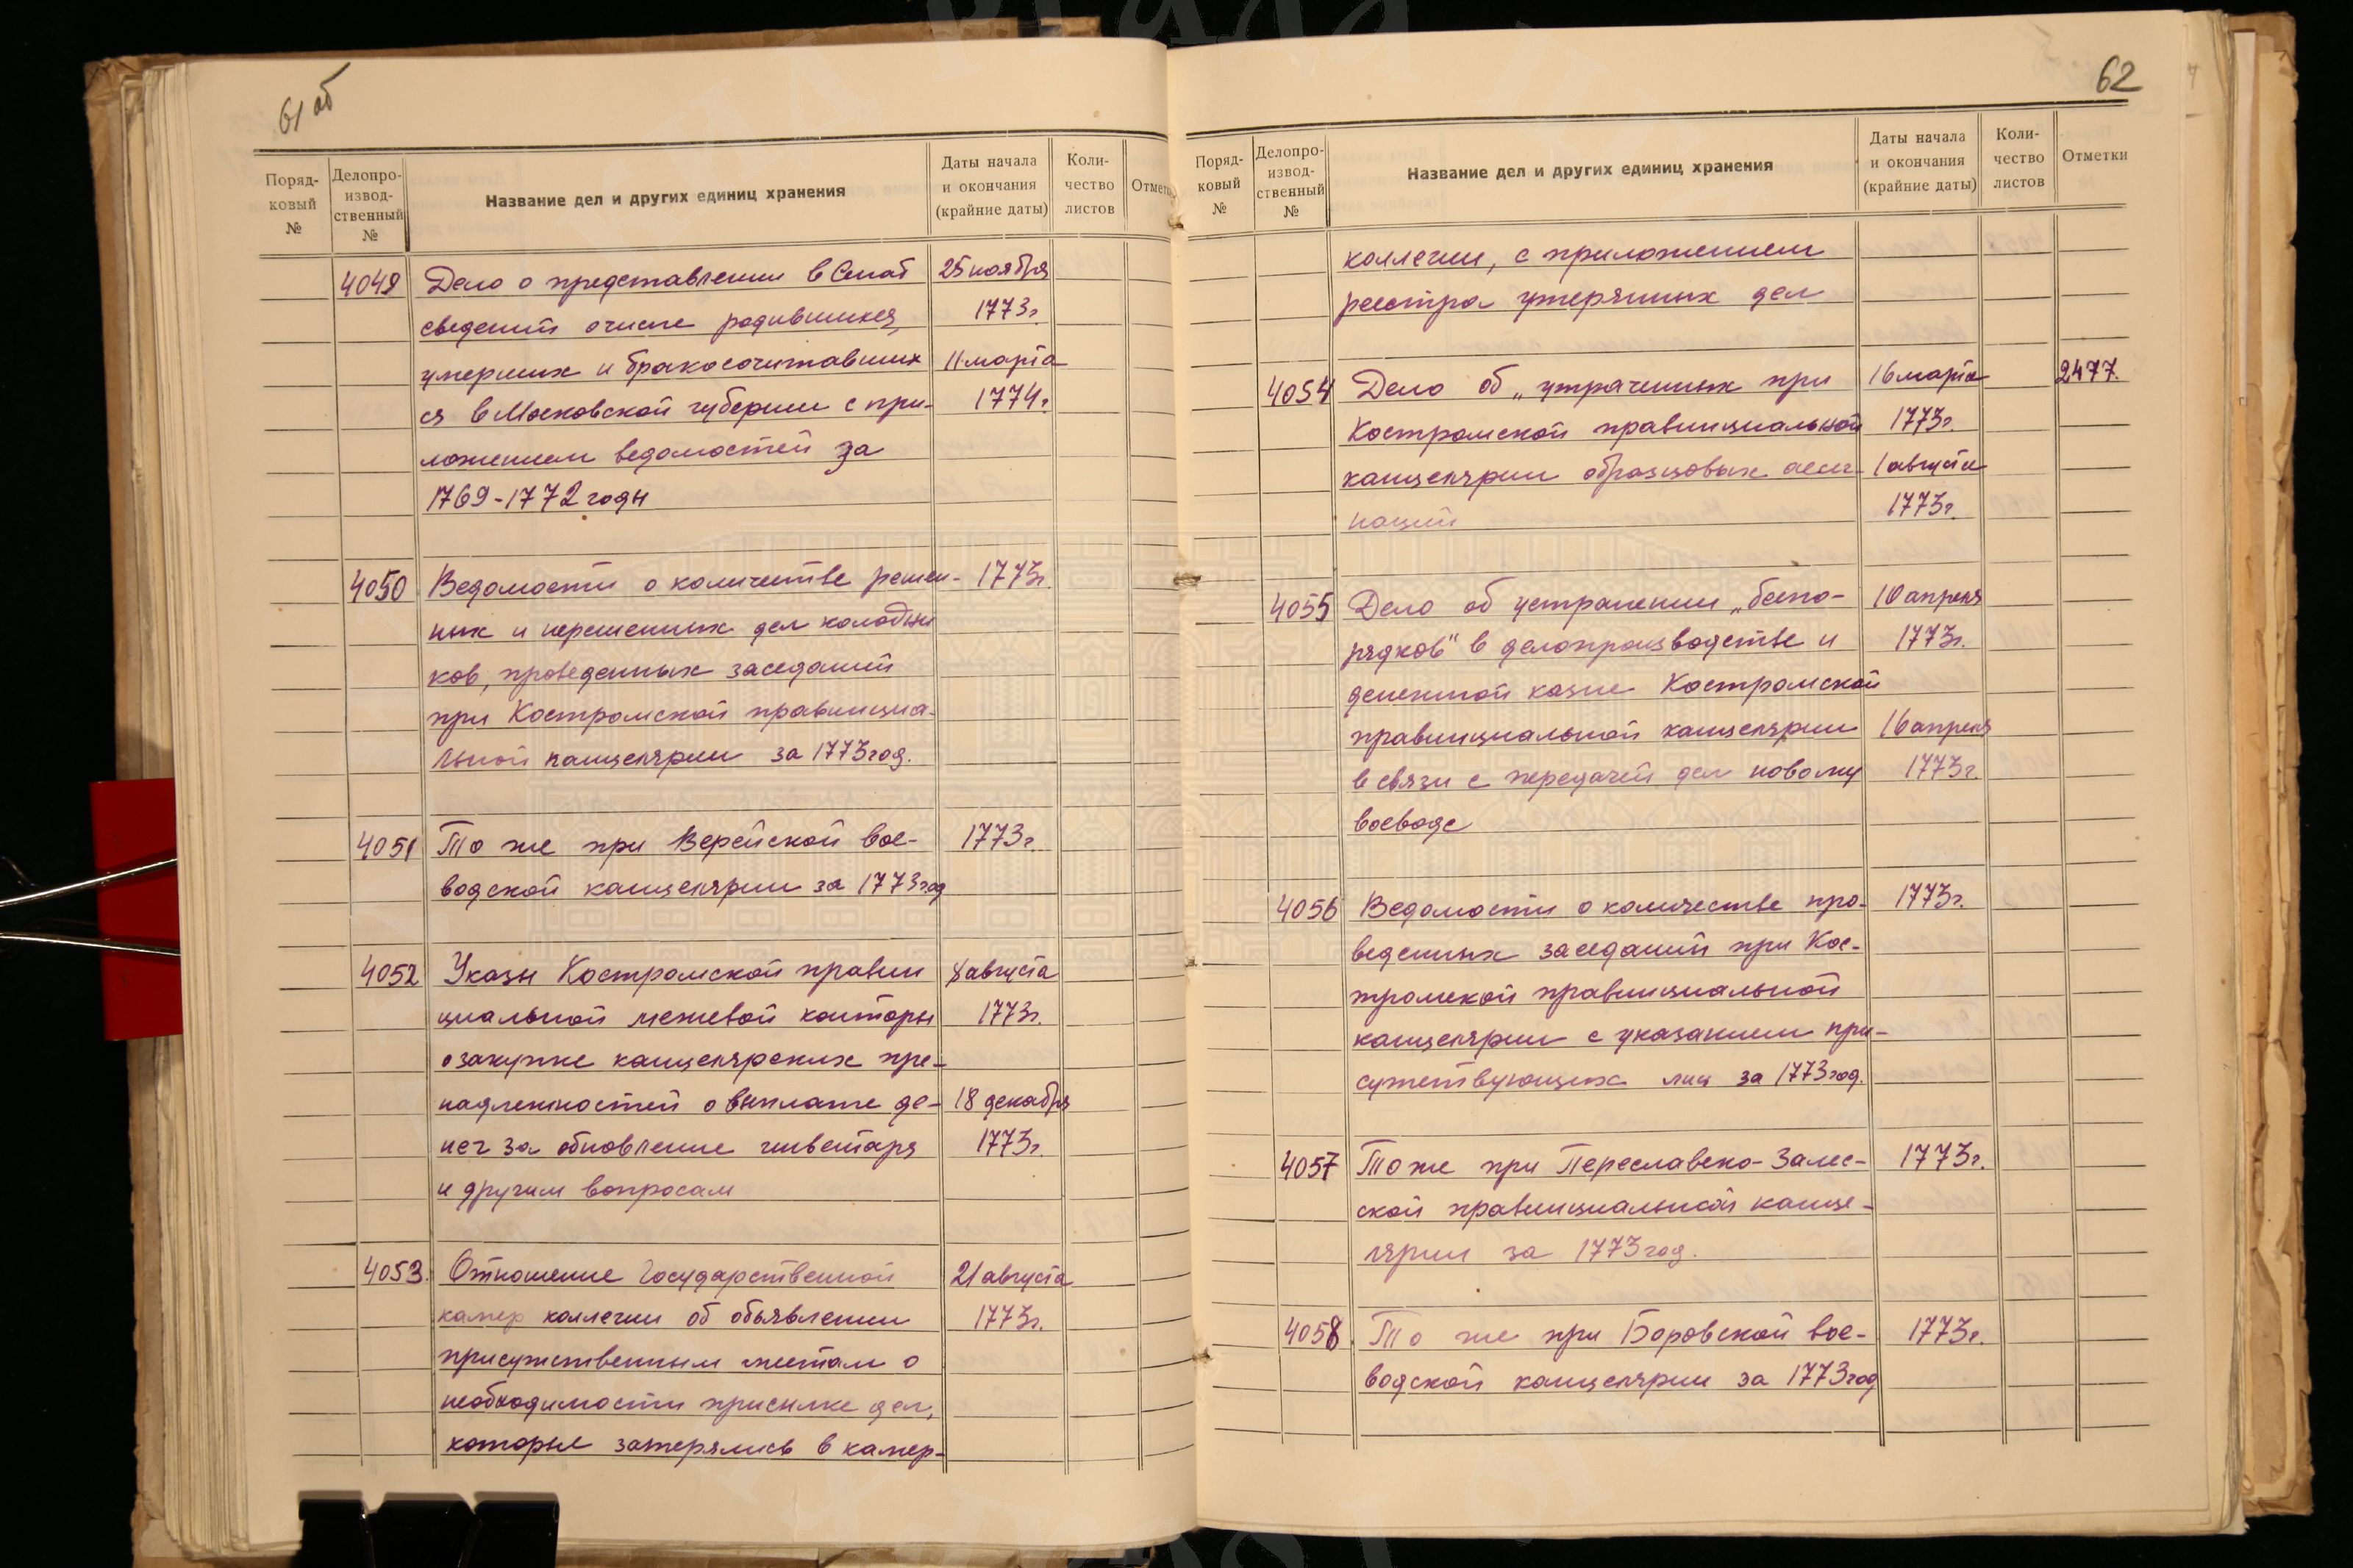 61 об
Поряд-
ковый
№
Делопро-
извод-
ственный
№
Название дел и других единиц хранения
Даты начала
и окончания
(крайние даты)
Коли-
чество
листов
Отметк
4049 Дело о представлении в Сенат 25 ноября
сведений о числе родившихся, 1773г.
умерших и бракосочитавших 11 марта
ся в Московской губернии с при- 1774г.
ложением ведомостей за
1769-1772 годы
4050 Ведомости о количестве решен- 1773г.
ных и нерешенных дел колодни
ков, проведенных заседаний
при Костромской провинциа-
льной канцелярии за 1773 год.
4051 То же при Верейской вое- 1773г.
водской канцелярии за 1773 год
4052 Указы Костромской провин 8 августа
циальной межевой конторы 1773г.
о закупке канцелярских при-
надлежностей о выплате де- 18 декабря
нег за обновление инвентаря 1773г.
и другим вопросам
4053. Отношение Государственной 21 августа
камер коллегии об объявлении 1773г.
присутственным местам о
необходимости присылке дел,
которые затерялись в камер-
62
Поряд-
ковый
№
Делопро-
извод-
ственный
№
Название дел и других единиц хранения
Даты начала
и окончания
(крайние даты)
Коли-
чество
листов
Отметки
коллегии, с приложением
реестра утерянных дел
4054 Дело об „утраченных при 16 марта 2477.
Костромской провинциальной 1773г.
канцелярии образцовых ассиг- 1 августа
наций 1773г.
4055 Дело об устранении „беспо- 10 апреля
рядков" в делопроизводстве и 1773г.
денежной казне Костромской
провинциальной канцелярии 16 апреля
в связи с передачей дел новому 1773г.
воеводе
4056 Ведомости о количестве про- 1773г.
веденных заседаний при Кос-
тромской провинциальной
канцелярии с указанием при-
сутствующих лиц за 1773 год.
4057 То же при Переславско-Залес- 1773г.
ской провинциальной канце-
лярии за 1773 год.
4058. То же при Боровской вое- 1773г.
водской канцелярии за 1773 год